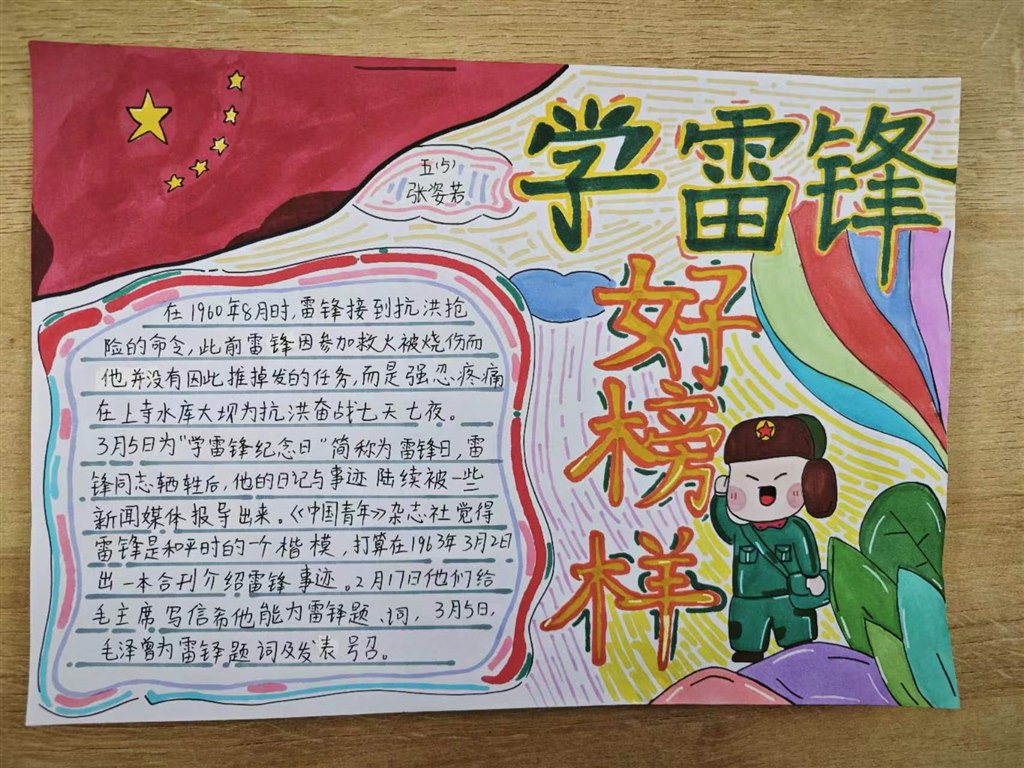 学雷锋
好
榜
样
五(5)
张姿若
在1960年8月时,雷锋接到抗洪抢
险的命令,此前雷锋因参加救火被烧伤而
他并没有因此推掉发的任务,而是强忍疼痛
在上寺水库大坝为抗洪奋战七天七夜。
3月5日为"学雷锋纪念日"简称为雷锋日,雷
锋同志牺牲后,他的日记与事迹陆续被一些
新闻媒体报导出来。《中国青年》杂志社觉得
雷锋是和平时的一个楷模,打算在1963年3月2日
出一本合刊介绍雷锋事迹。2月17日他们给
毛主席写信希他能为雷锋题、词,3月5日,
毛泽曾为雷锋题词及发表号召。